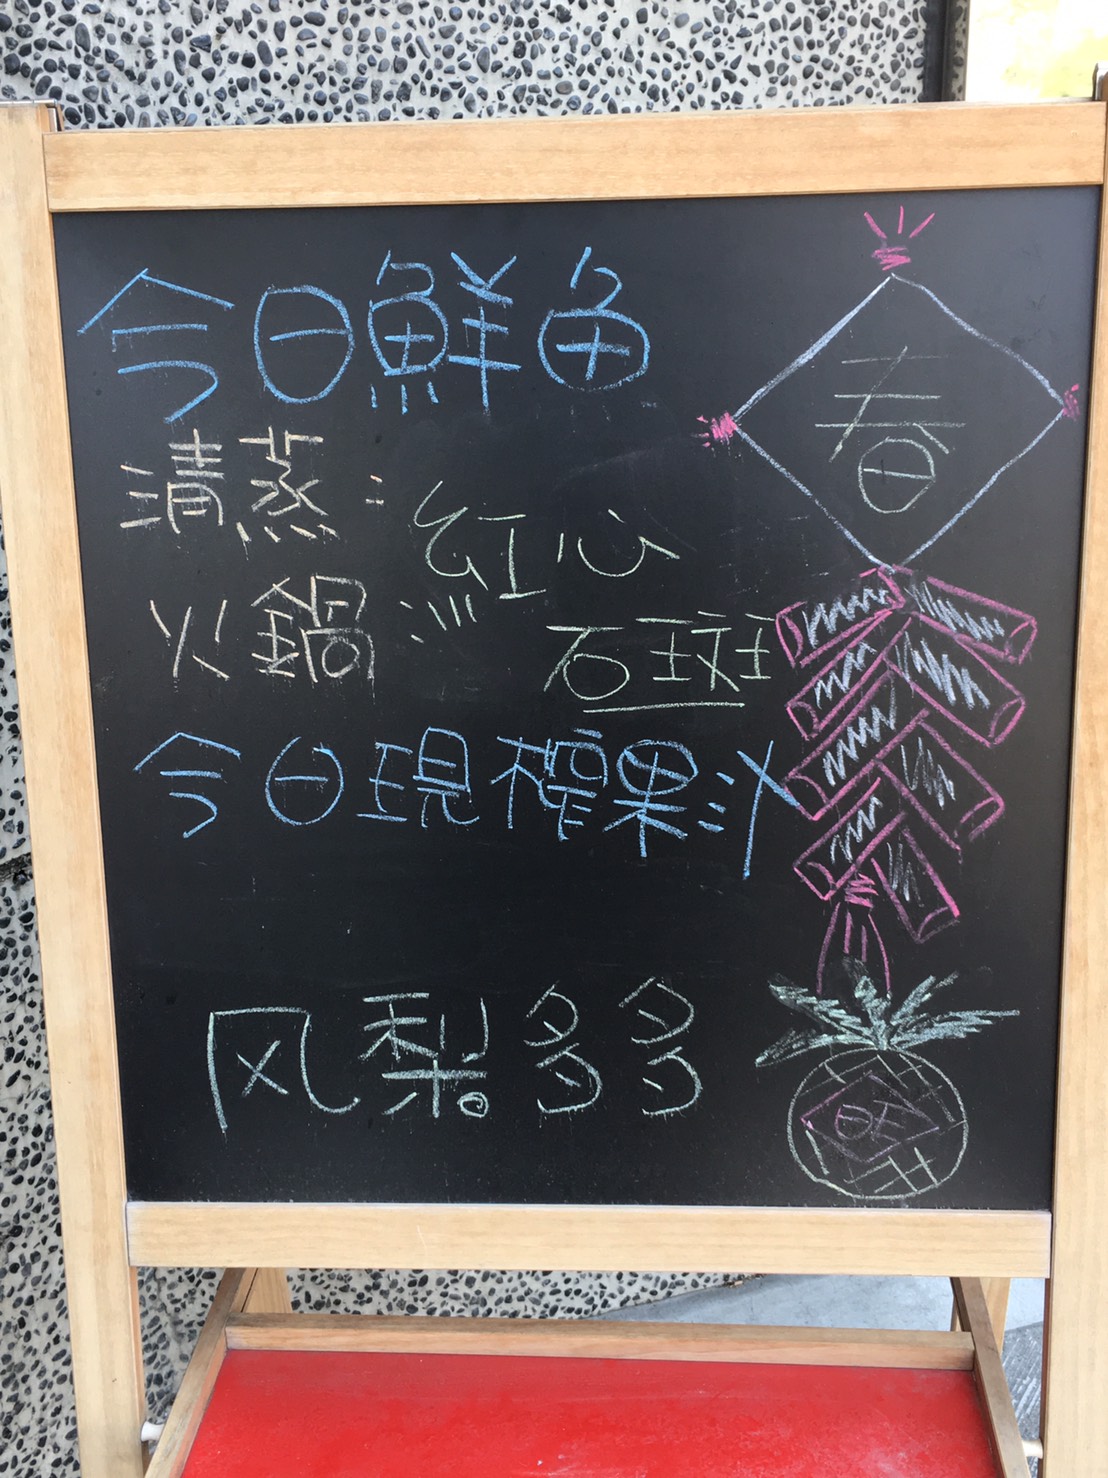 今日鮮魚
清蒸：紅心
火鍋：石斑
今日現榨果汁
风梨多多
春
旺